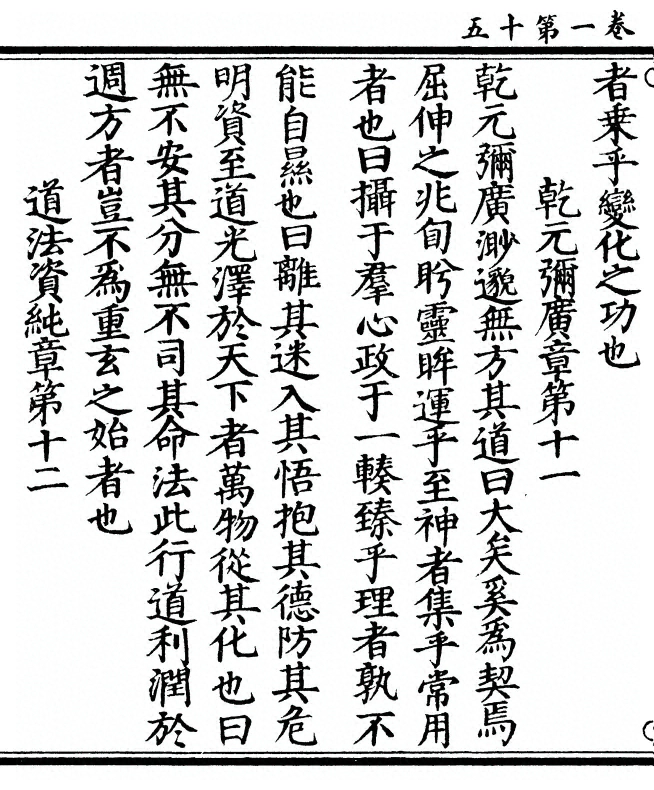 卷一第十五
者乗乎變化之功也
乾元彌廣章第十一
乾元彌廣渺邈無方其道曰大矣奚爲契焉
屈伸之兆旬盻靈眸運乎至神者集乎常用
者也曰攝于羣心政于一輳臻乎理者孰不
能自㬎也曰離其迷入其悟抱其德防其危
明資至道光澤於天下者萬物從其化也曰
無不安其分無不司其命法此行道利潤於
週方者豈不爲重玄之始者也
道法資純章第十二